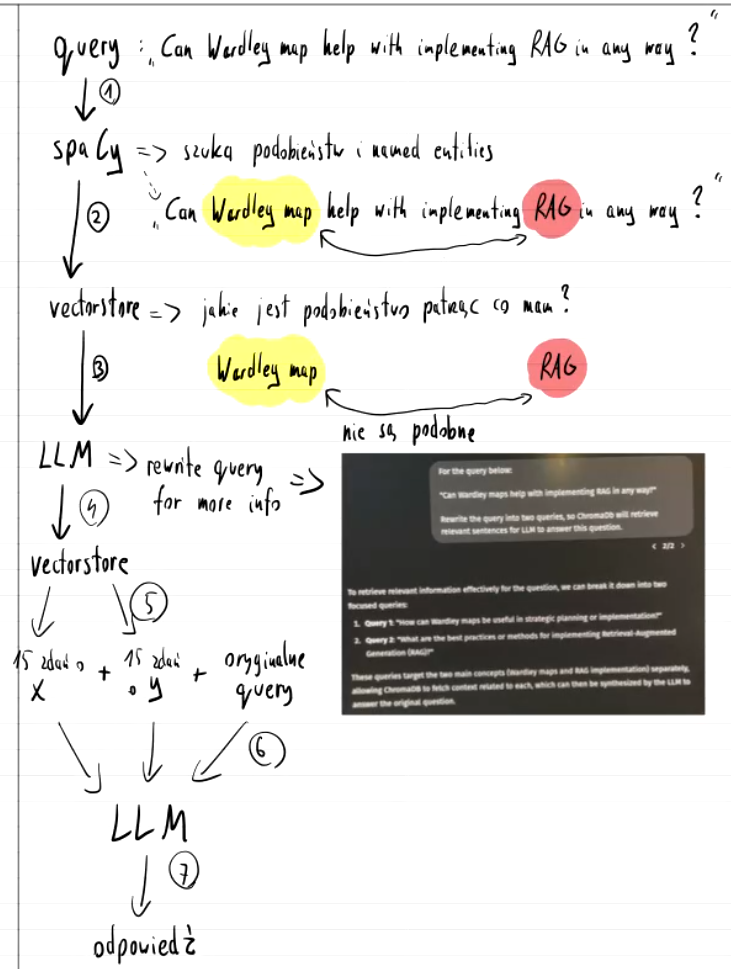 query : „Can Wardley map help with implementing RAG in any way?”
①
spaCy => szuka podobieństw i named entities
②
„Can Wardley map help with implementing RAG in any way?”
vectorstore => jakie jest podobieństwo patrząc co mam?
③
Wardley map RAG
nie są podobne
LLM => rewrite query =>
for more info
④
For the query below:
"Can Wardley maps help with implementing RAG in any way?"
Rewrite the query into two queries, so ChromaDb will retrieve
relevant sentences for LLM to answer this question.
< 2/2 >
To retrieve relevant information effectively for the question, we can break it down into two
focused queries:
1. Query 1: "How can Wardley maps be useful in strategic planning or implementation?"
2. Query 2: "What are the best practices or methods for implementing Retrieval-Augmented
Generation (RAG)?"
These queries target the two main concepts (Wardley maps and RAG implementation) separately,
allowing ChromaDB to fetch context related to each, which can then be synthesized by the LLM to
answer the original question.
vectorstore
⑤
15 zdań o + 15 zdań + oryginalne
x o y query
⑥
LLM
⑦
odpowiedź